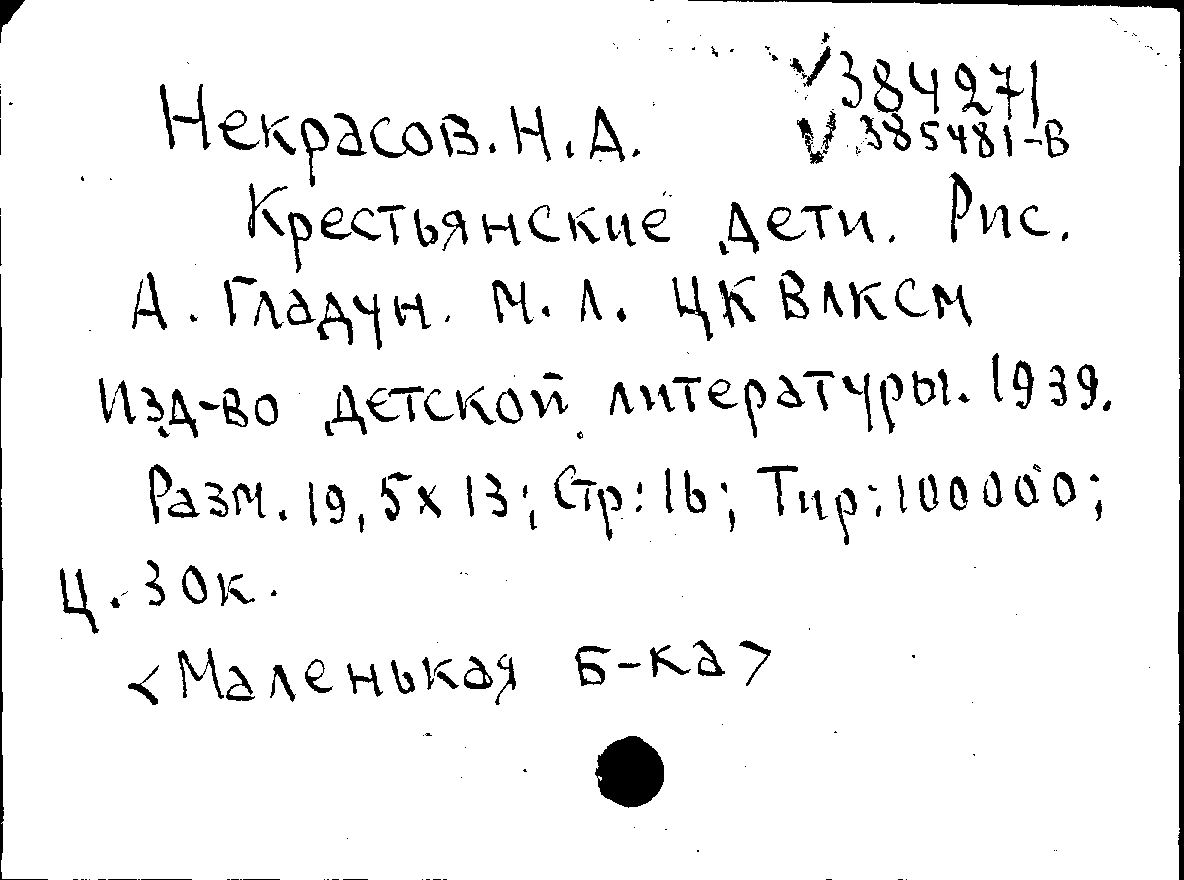 V 384271
V 385481-В
Некрасов. Н. А.
Крестьянские дети. Рис.
А. Гладун. М. Л. ЦК ВЛКСМ
Изд-во детской литературы. 1939.
Разм. 19,5х13; Стр: 16; Тир: 100000;
Ц. 30к.
<Маленькая б-ка>